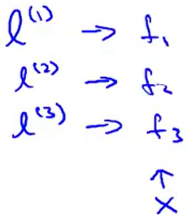 l⁽¹⁾ → f₁
l⁽²⁾ → f₂
l⁽³⁾ → f₃
↑
x